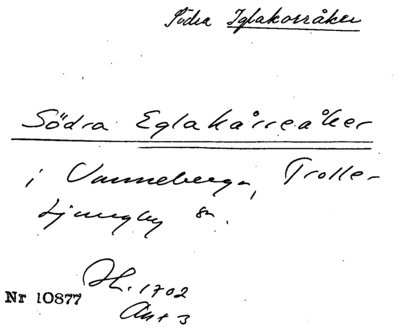 Södra Iglakorråker
Södra Eglakårreåker
i Vanneberga, Trolle-
Ljungby sn.
Jh. 1702
Nr 10877
Akt 3